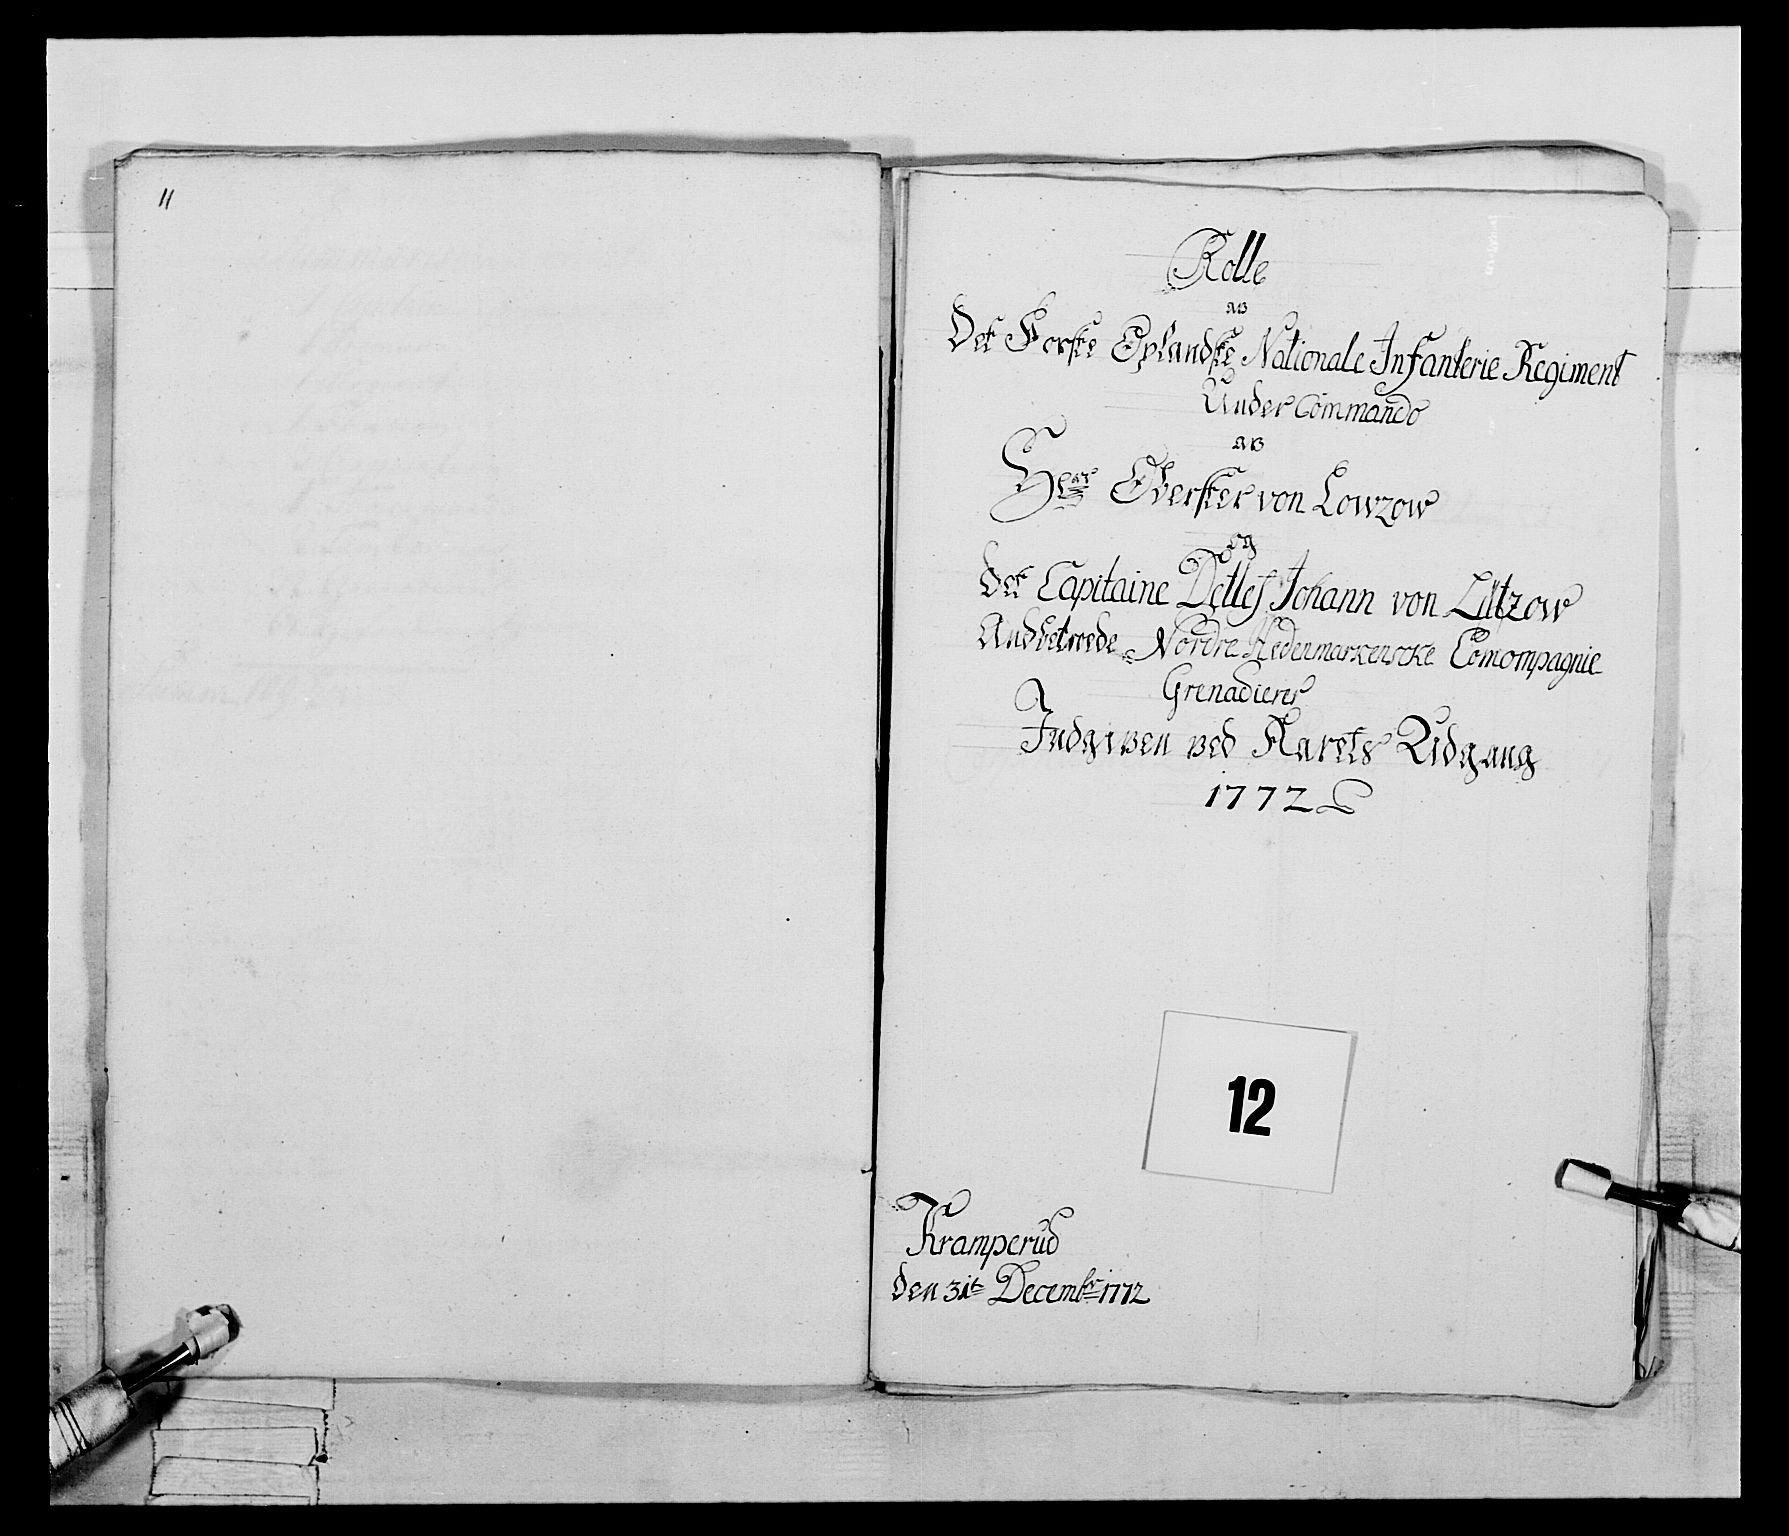 11
Rolle
av
Det Første Oplandske Nationale Infanterie Regiment
Under Commando
av
Herr Oberster von Lowzow
og
Det Capitaine Detlef Johann von Lützow
Andbetroede Nordre Hedemarkenscke Comompagnie
Grenadierer
Indgiven ved Aarets Udgang
1772
12
Kramperud
den 31te Decembr 1772